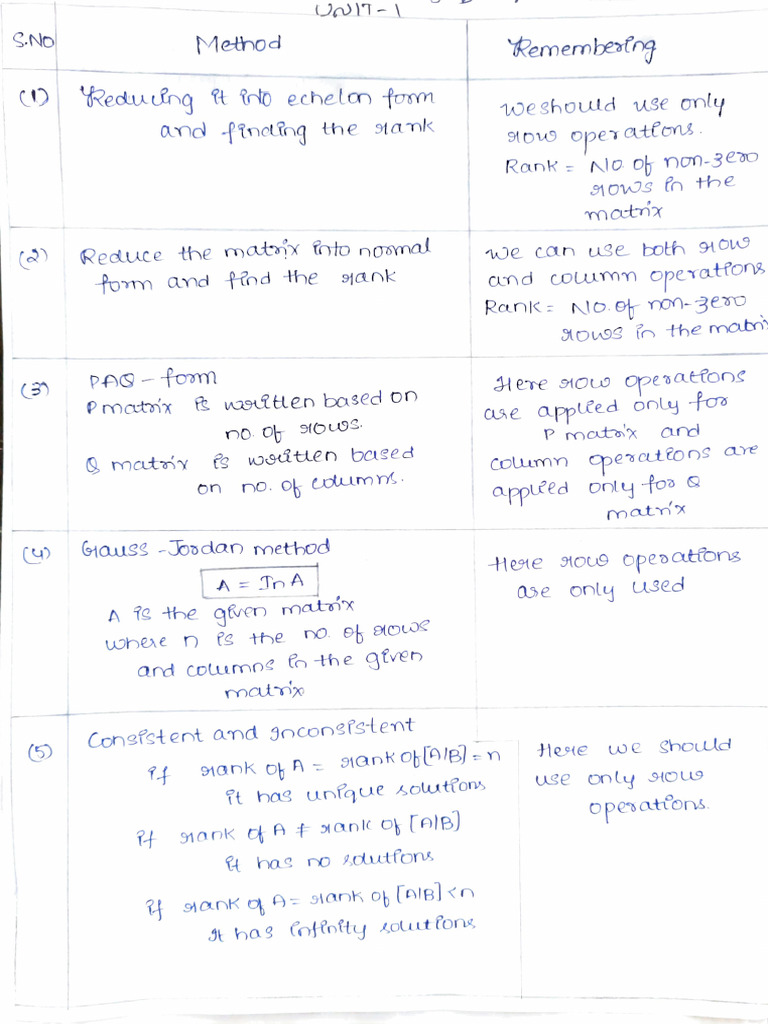 UNIT-1
S.NO
Method
Remembering
(1)
Reducing it into echelon form
and finding the rank
we should use only
row operations.
Rank = No of non-zero
rows in the
matrix
(2)
Reduce the matrix into normal
form and find the rank
we can use both row
and column operations
Rank = No. of non-zero
rows in the matrix
(3)
PAQ - form
P matrix is written based on
no. of rows.
Q matrix is written based
on no. of columns.
Here row operations
are applied only for
P matrix and
column operations are
applied only for Q
matrix
(4)
Gauss - Jordan method
A = In A
A is the given matrix
where n is the no. of rows
and columns in the given
matrix
Here row operations
are only used
(5)
Consistent and Inconsistent
if rank of A = rank of [A/B] = n
it has unique solutions
if rank of A ≠ rank of [A/B]
it has no solutions
if rank of A = rank of [A/B] < n
It has infinity solutions
Here we should
use only row
operations.